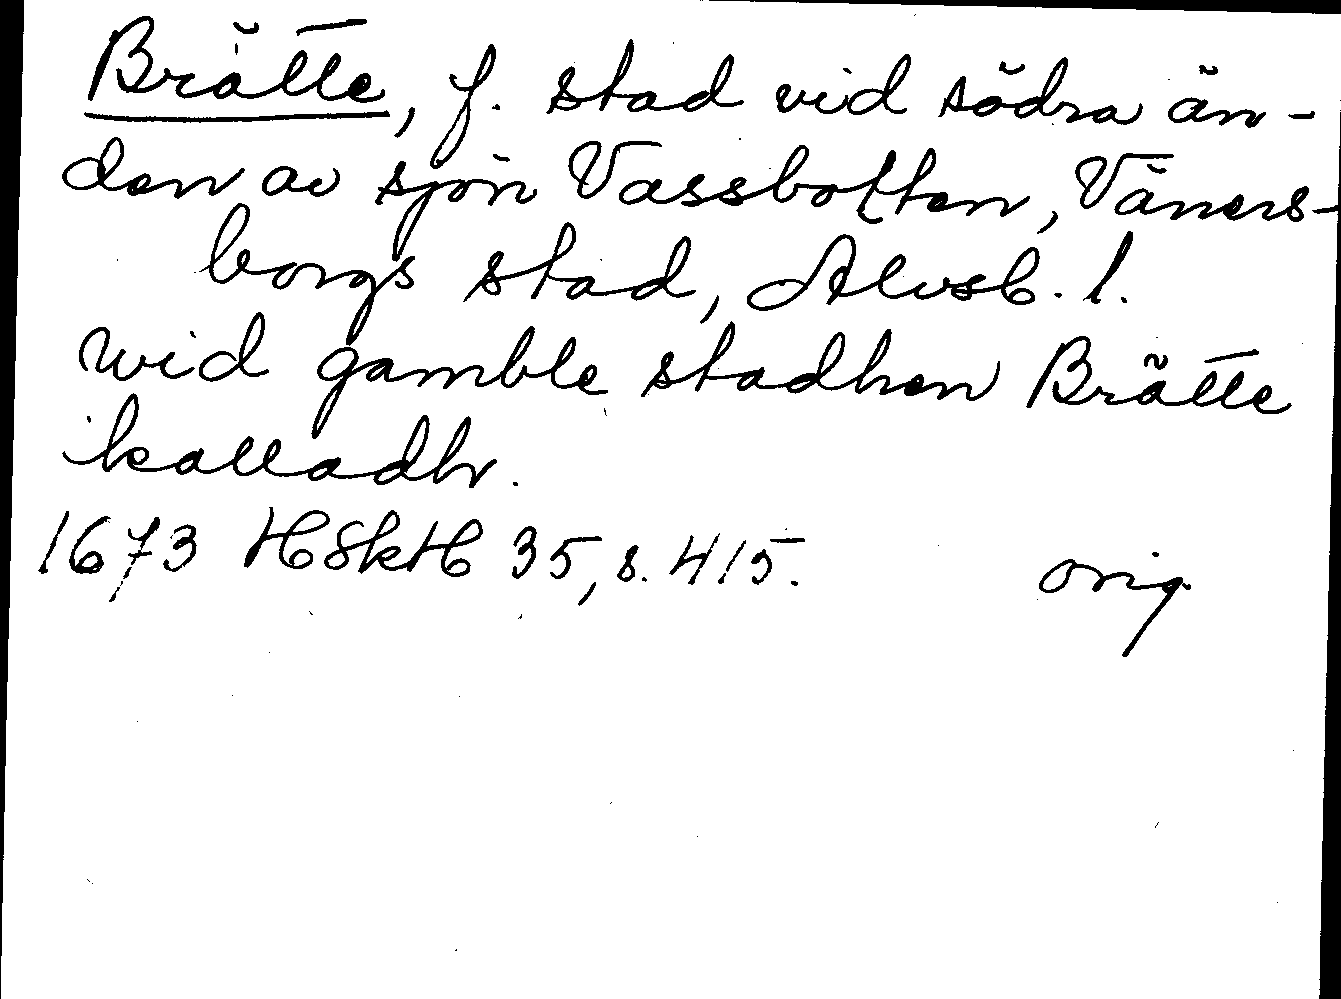 Brätte, f. stad vid södra än-
den av sjön Vassbotten, Väners-
borgs stad, Älvsb. l.
wid gamble stadhen Brätte
kalladhr.
1673 HSkH 35, s. 415. orig.